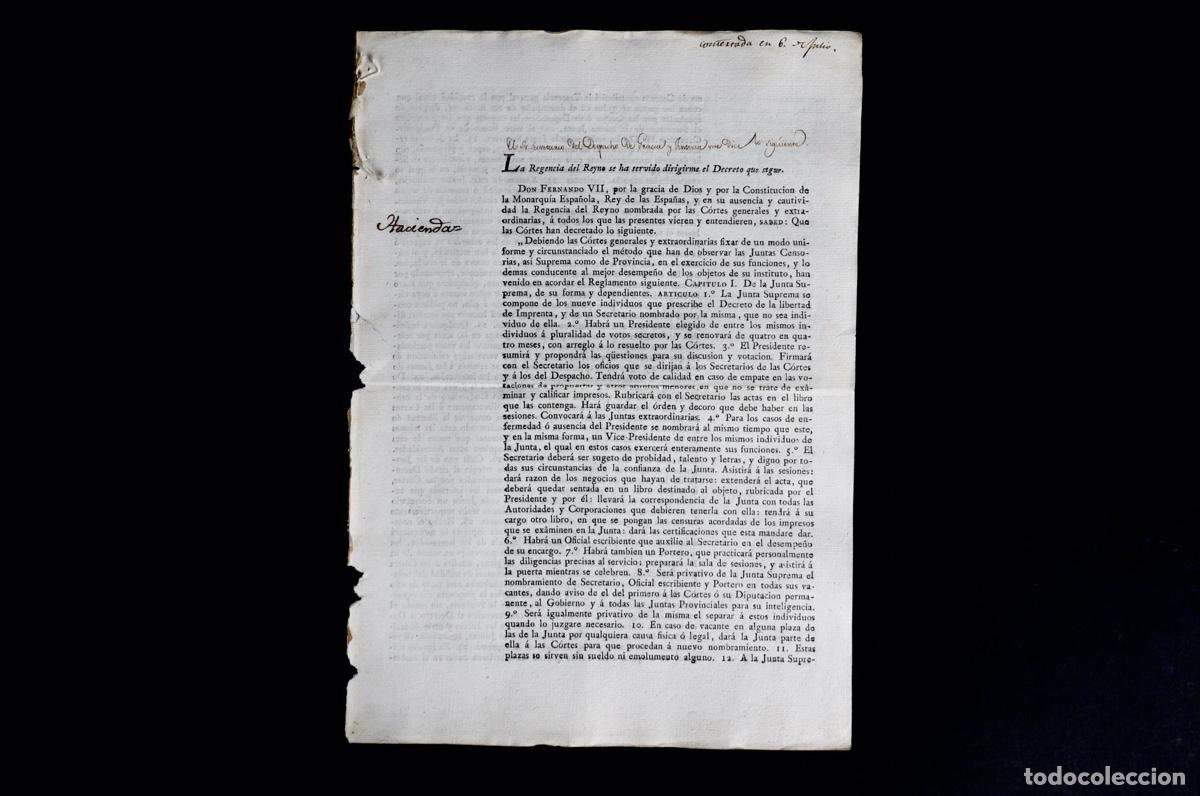 contextada en 6. Julio.
El Sr. Secretario del Despacho de Gracia y Justicia me dice lo siguiente.
La Regencia del Reyno se ha servido dirigirme el Decreto que sigue.
Hacienda=
DON FERNANDO VII, por la gracia de Dios y por la Constitucion de
la Monarquía Española, Rey de las Españas, y en su ausencia y cautivi-
dad la Regencia del Reyno nombrada por las Córtes generales y extra-
ordinarias, á todos los que las presentes vieren y entendieren, SABED: Que
las Córtes han decretado lo siguiente.
„Debiendo las Córtes generales y extraordinarias fixar de un modo uni-
forme y circunstanciado el método que han de observar las Juntas Censo-
rias, asi Suprema como de Provincia, en el exercicio de sus funciones, y lo
demas conducente al mejor desempeño de los objetos de su instituto, han
venido en acordar el Reglamento siguiente. CAPITULO I. De la Junta Su-
prema, de su forma y dependientes. ARTICULO 1.º La Junta Suprema se
compone de los nueve individuos que prescribe el Decreto de la libertad
de Imprenta, y de un Secretario nombrado por la misma, que no sea indi-
viduo de ella. 2.º Habrá un Presidente elegido de entre los mismos in-
dividuos á pluralidad de votos secretos, y se renovará de quatro en qua-
tro meses, con arreglo á lo resuelto por las Córtes. 3.º El Presidente re-
sumirá y propondrá las qüestiones para su discusion y votacion. Firmará
con el Secretario los oficios que se dirijan á los Secretarios de las Córtes
y á los del Despacho. Tendrá voto de calidad en caso de empate en las vo-
taciones de propuestas y otros asuntos menores en que no se trate de exâ-
minar y calificar impresos. Rubricará con el Secretario las actas en el libro
que las contenga. Hará guardar el órden y decoro que debe haber en las
sesiones. Convocará á las Juntas extraordinarias. 4.º Para los casos de en-
fermedad ó ausencia del Presidente se nombrará al mismo tiempo que este,
y en la misma forma, un Vice-Presidente de entre los mismos individuos de
la Junta, el qual en estos casos exercerá enteramente sus funciones. 5.º El
Secretario deberá ser sugeto de probidad, talento y letras, y digno por to-
das sus circunstancias de la confianza de la Junta. Asistirá á las sesiones:
dará razon de los negocios que hayan de tratarse: extenderá el acta, que
deberá quedar sentada en un libro destinado al objeto, rubricada por el
Presidente y por él: llevará la correspondencia de la Junta con todas las
Autoridades y Corporaciones que debieren tenerla con ella: tendrá á su
cargo otro libro, en que se pongan las censuras acordadas de los impresos
que se exâminen en la Junta: dará las certificaciones que esta mandare dar.
6.º Habrá un Oficial escribiente que auxilie al Secretario en el desempeño
de su encargo. 7.º Habrá tambien un Portero, que practicará personalmente
las diligencias precisas al servicio; preparará la sala de sesiones, y asistirá á
la puerta mientras se celebren. 8.º Será privativo de la Junta Suprema el
nombramiento de Secretario, Oficial escribiente y Portero en todas sus va-
cantes, dando aviso de el del primero á las Córtes ó su Diputacion perma-
nente, al Gobierno y á todas las Juntas Provinciales para su inteligencia.
9.º Será igualmente privativo de la misma el separar á estos individuos
quando lo juzgare necesario. 10. En caso de vacante en alguna plaza de
las de la Junta por qualquiera causa fisica ó legal, dará la Junta parte de
ella á las Córtes para que procedan á nuevo nombramiento. 11. Estas
plazas se sirven sin sueldo ni emolumento alguno. 12. A la Junta Supre-
todocoleccion